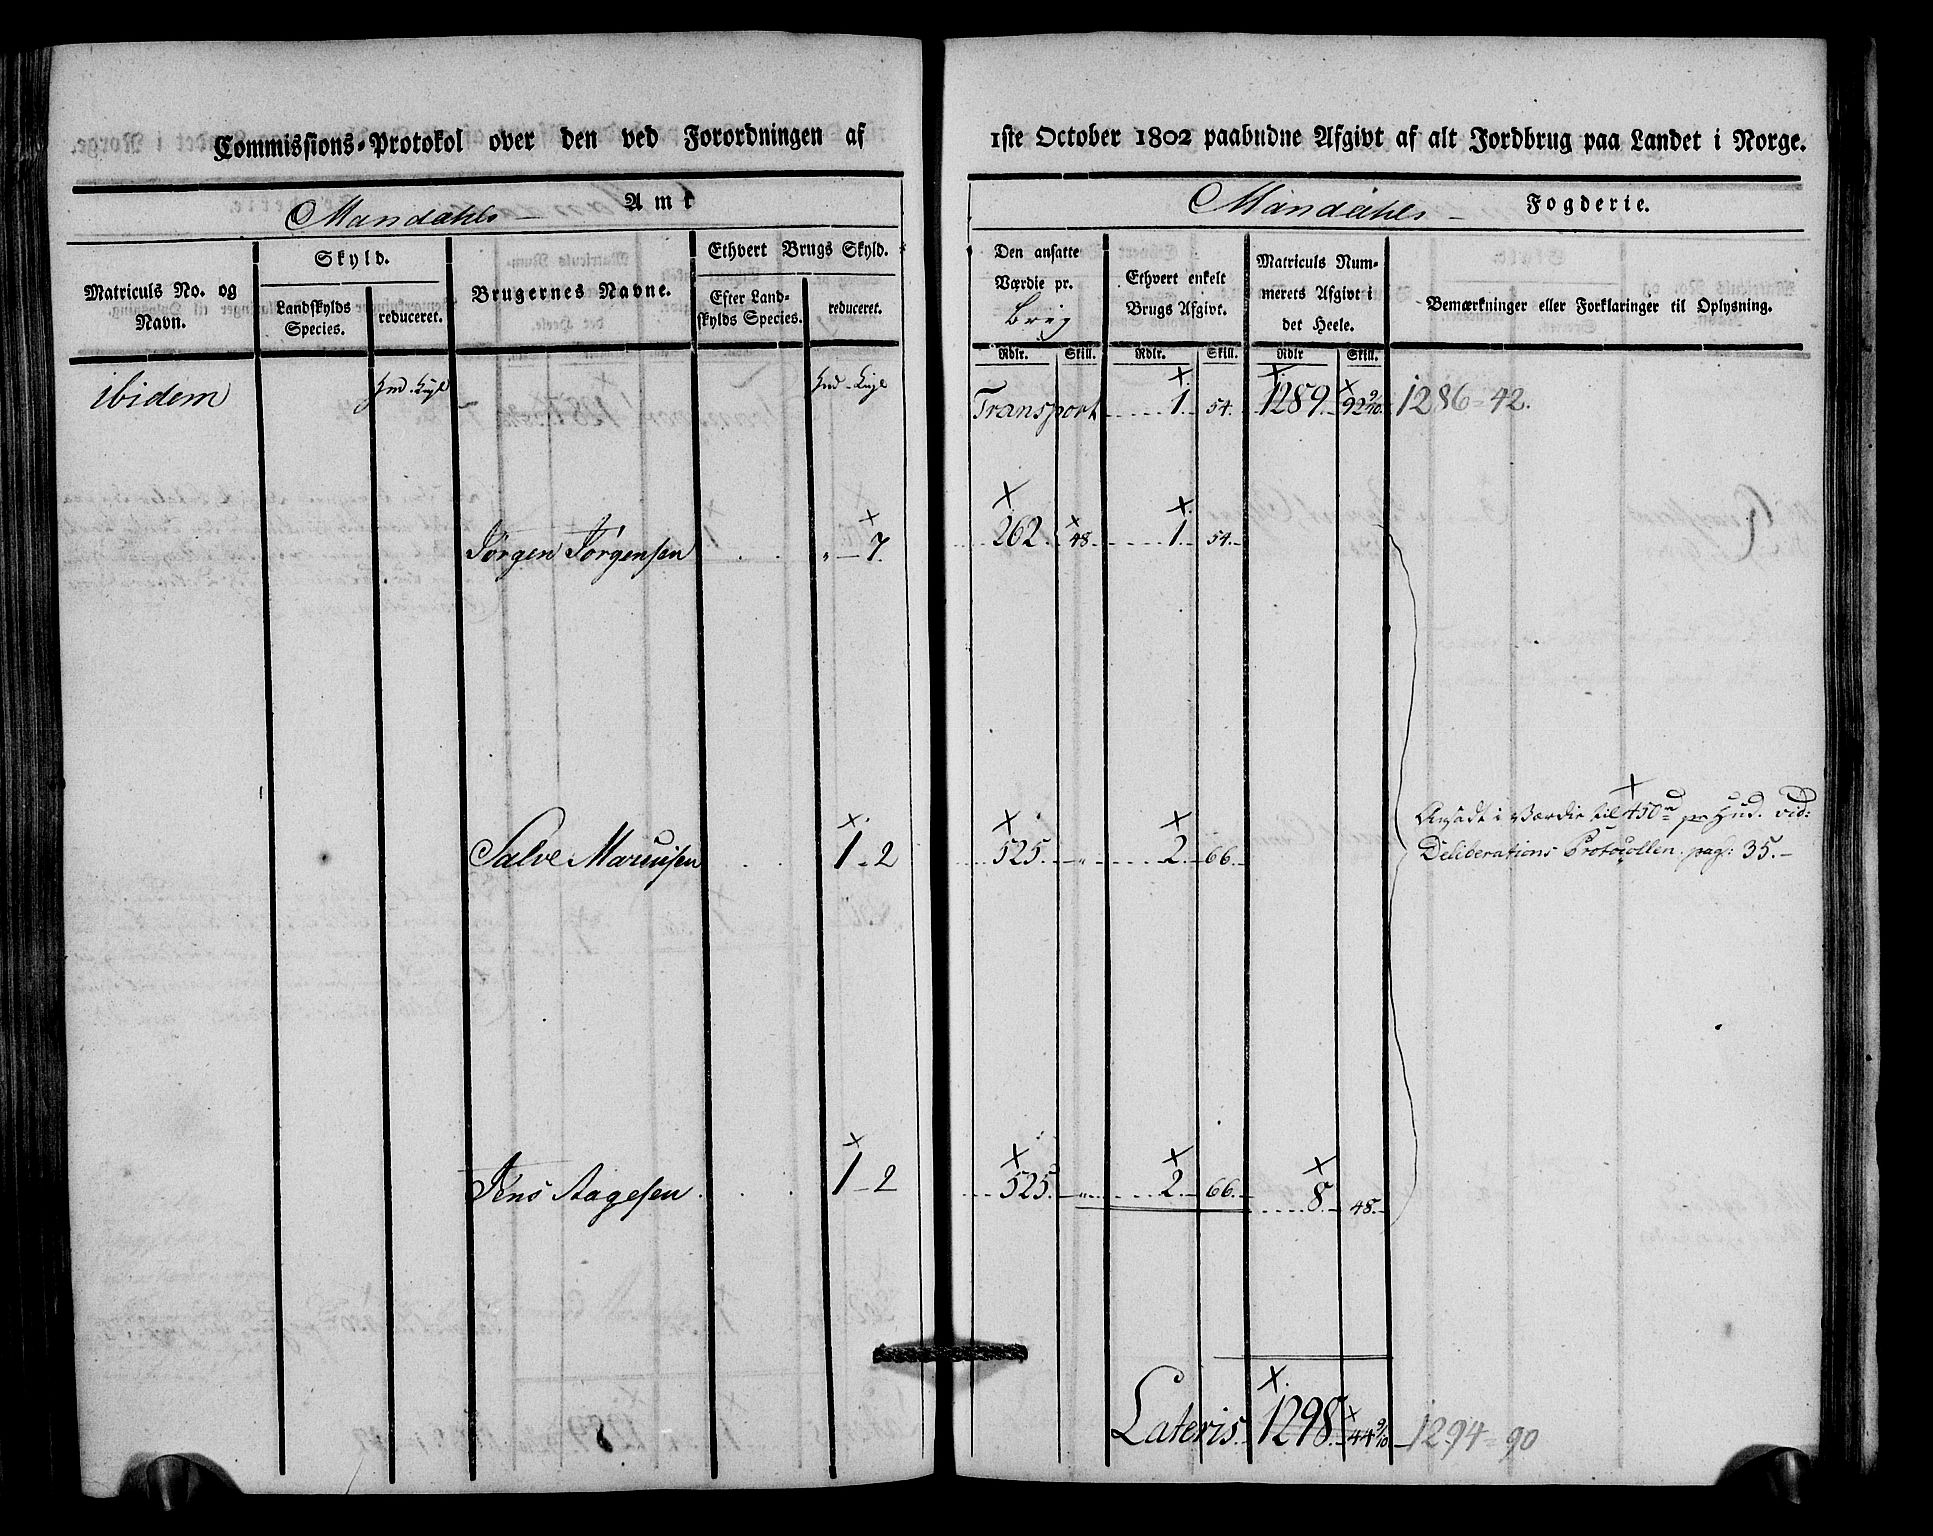 Commissions-Protokol over den ved Forordningen af 1ste October 1802 paabudne Afgivt af alt Jordbrug paa Landet i Norge.
Mandahls Amt
Mandahls Fogderie.
Matriculs No. og Navn.
Skyld.
Landskylds Species.
reduceret.
Brugernes Navne.
Ethvert Brugs Skyld.
Efter Landskylds Species.
reduceret.
Den ansatte Værdie pr. Brug
Rdlr. Skill.
Ethvert enkelt Brugs Afgivt.
Rdlr. Skill.
Matriculs Nummerets Afgivt i det Heele.
Rdlr Skill.
Bemærkninger eller Forklaringer til Oplysning.
ibidem
Transport 1. 54. 1289. 92 9/10. 1286 = 42.
Jörgen Jörgensen „ - 7. 262. 48. 1. 54.
Salve Marcusen 1 - 2 525. „ 2. 66.
Ansadt i Værdie til 450 rd pr Hud. vid:
Deliberations Protocollen pag: 35.
Jens Aagesen 1 - 2 525. „ 2. 66. 8. 48.
Lateris 1298. 44 9/10 1294 = 90